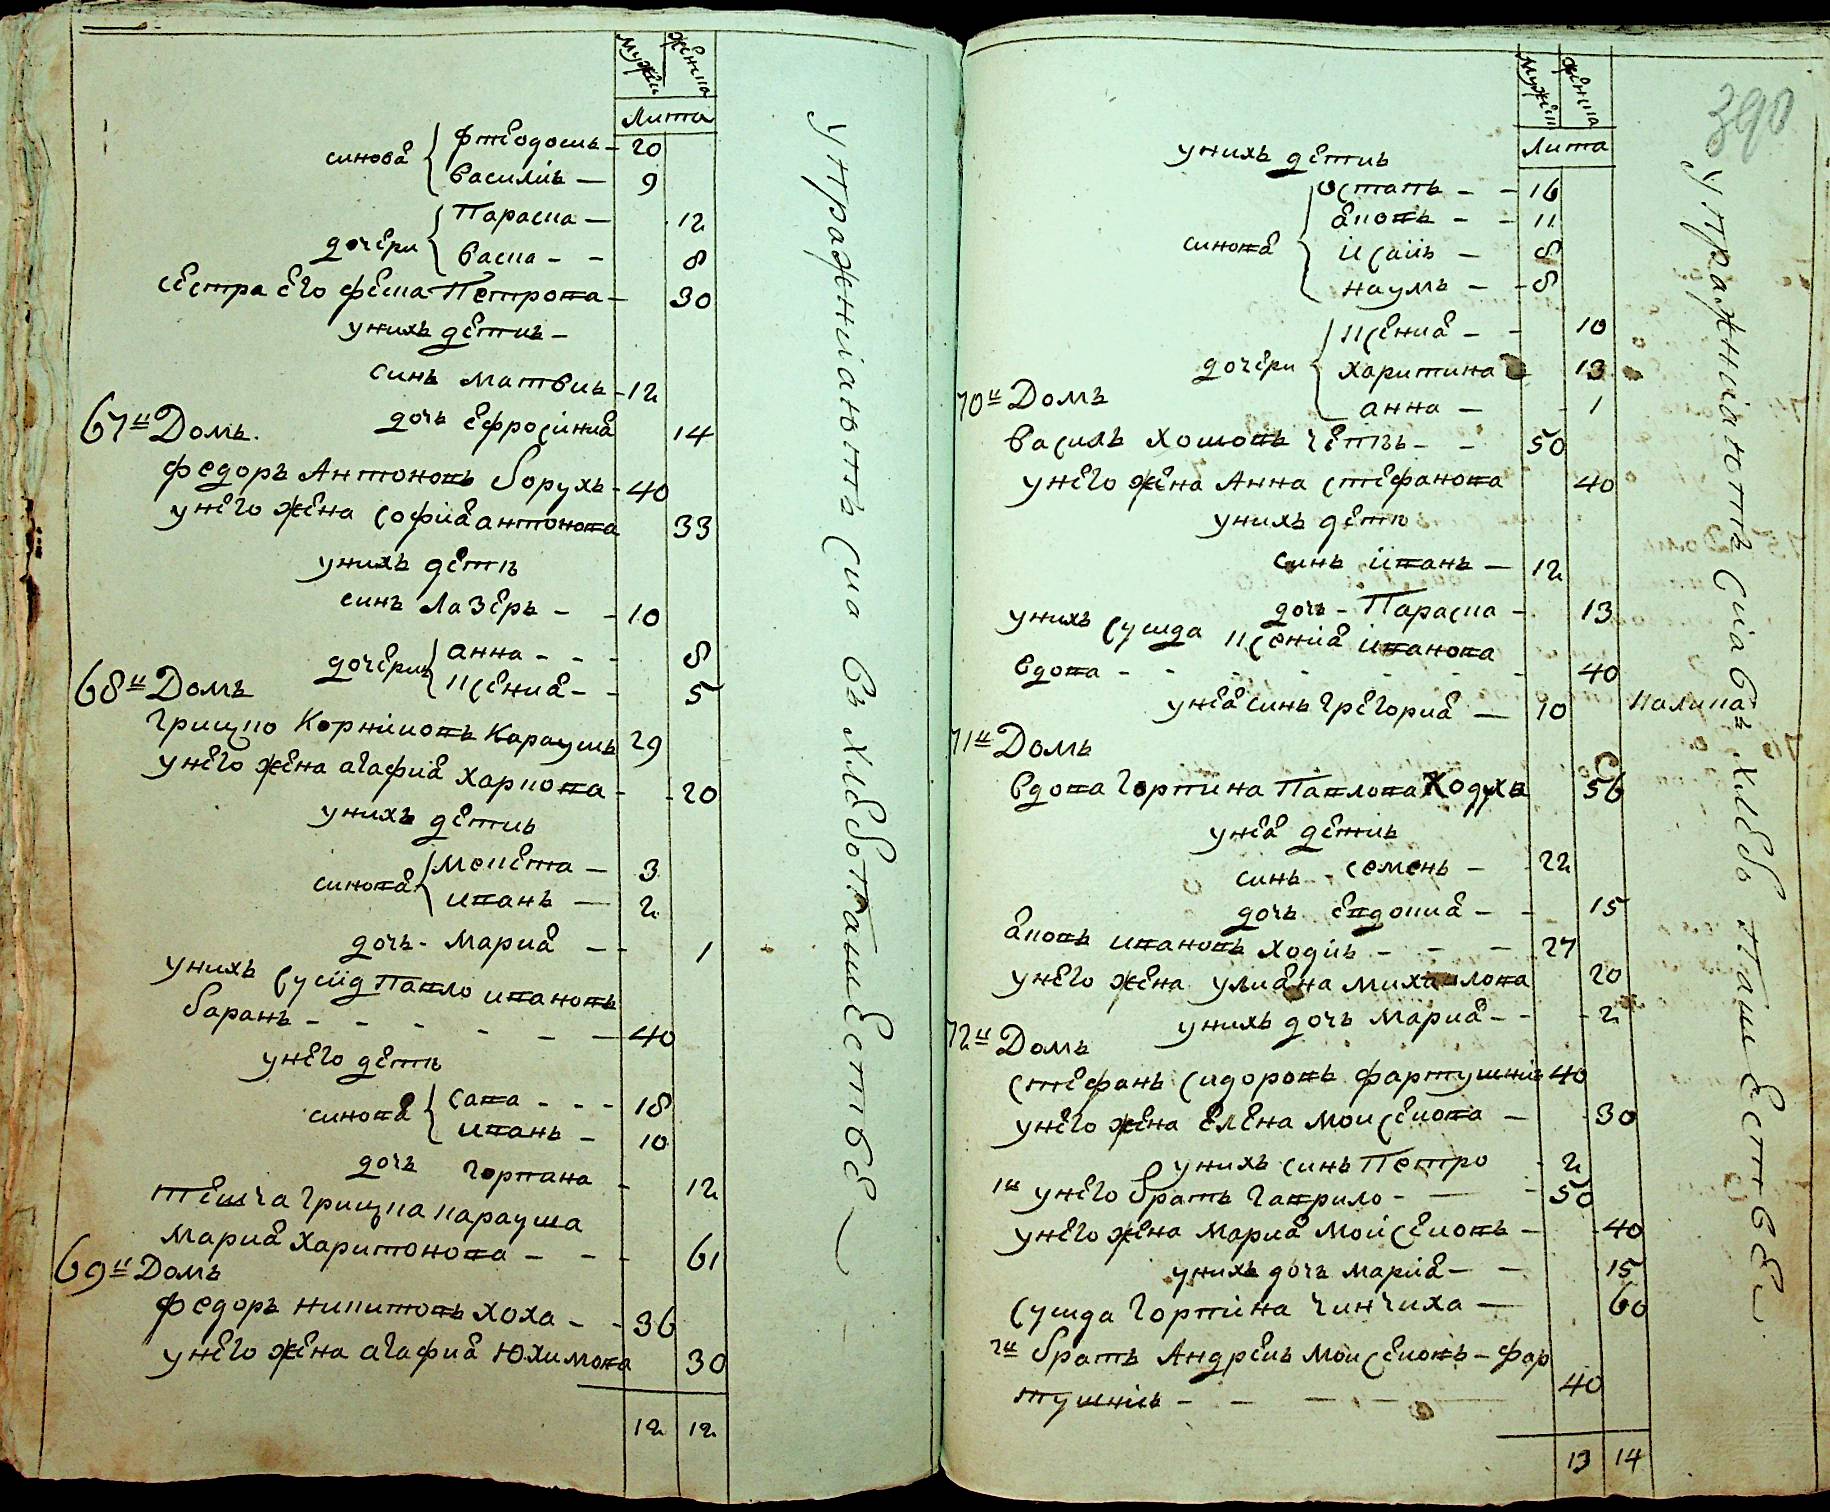 мужеск женска
Лита
синове Фтеодосиь 20
Василиь 9
дочери Параска 12
Васка 8
сестра его феша Петрова 30
унихъ детиь
синъ матвиь 12
дочь ефросиниа 14
67й Домъ.
федоръ Антоновъ борухъ 40
унего жена софиа антонова 33
унихъ дети
синъ Лазеръ 10
дочери анна 8
ксениа 5
68й Домъ
Грицко Корниловъ Караушъ 29
унего жена агафиа харкова 20
унихъ детиь
синове микита 3
иванъ 2
дочь мариа 1
унихъ сусид Павло ивановъ
баранъ 40
унего дети
синове сава 18
иванъ 10
дочь горпина 12
тешча грицка карауша
Мариа Харитонова 61
69й Домъ
федоръ никитовъ хоха 36
унего жена агафиа Юхимова 30
12 12
упражнѣаютъ сиа въ хлѣбопашествѣ
мужеск женска
Лита
390
унихъ детиь
синове Остапъ 16
Яковъ 11
исаиь 8
наумъ 8
дочери ксениа 10
харитина 13
анна 1
70й Домъ
Василь хошовъ 50
унего жена Анна стефанова 40
унихъ дети
синъ иванъ 12
дочь Параска 13
унихъ сушда ксениа иванова
вдова 40
унеа синъ грегориа 10 калика
71й Домъ
вдова горпина Павлова Ходуха 56
унеа детиь
синъ семенъ 22
дочь евдокиа 15
Яковъ ивановъ ходиь 27
унего жена улиана михаилова 20
унихъ дочь мариа 2
72й Домъ
стефанъ сидоровъ фартушниь 40
унего жена елена моисеиова 30
унихъ синъ Петро 2
1й унего братъ гаврило 50
унего жена мариа моисеиовъ 40
унихъ дочь мариа 15
сушда горпина чинчиха 60
2й братъ Андреиь моисеиовъ фар
тушниь 40
13 14
упражнѣаютъ сиа въ хлѣбопашествѣ